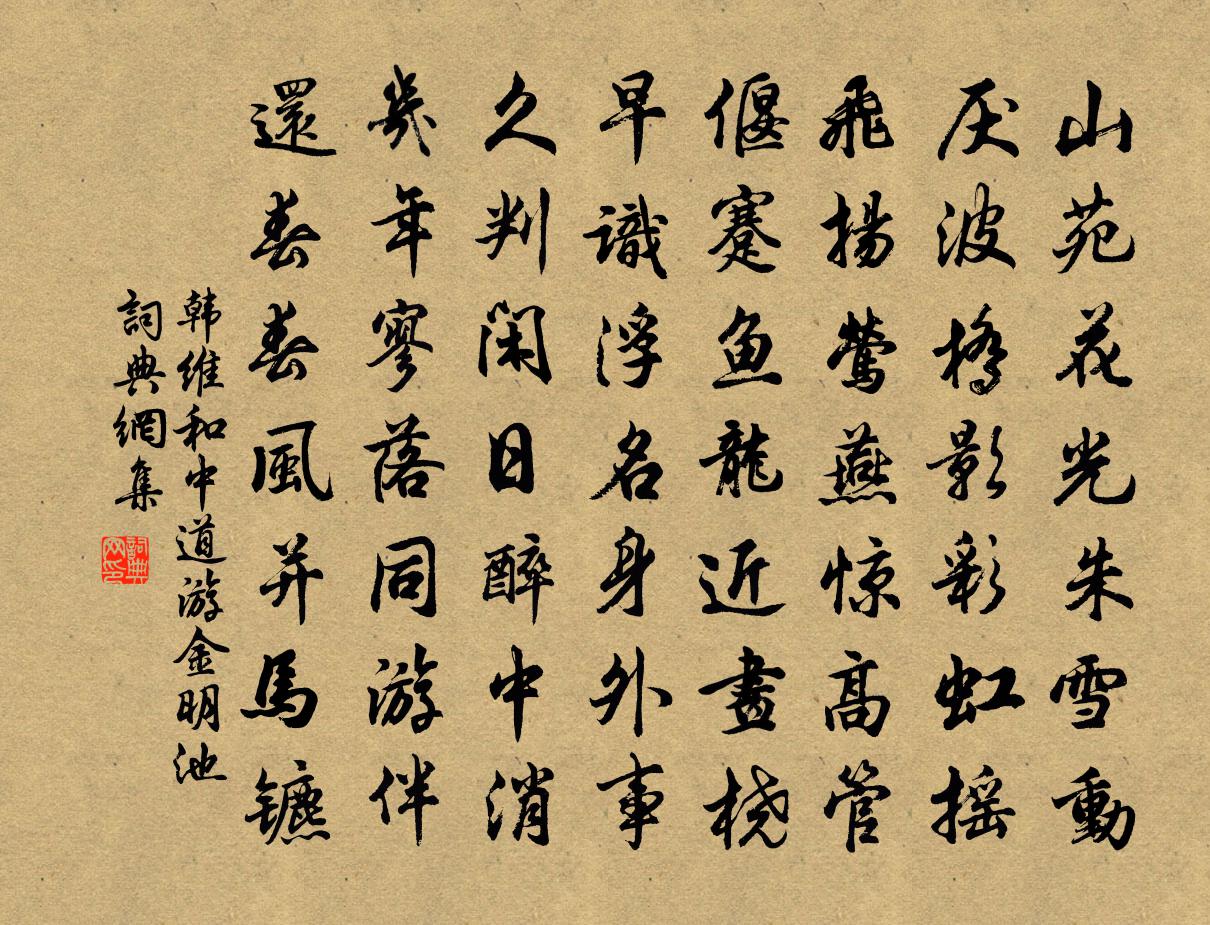 山苑花光朱雪動
厌波橋影彩虹摇
飛揚鶯燕惊高管
偃蹇鱼龍近畫桡
早識浮名身外事
久判闲日醉中消
幾年寥落同游伴
還春春風并馬镳
韩维和中道游金明池
詞典網集
詞典网印